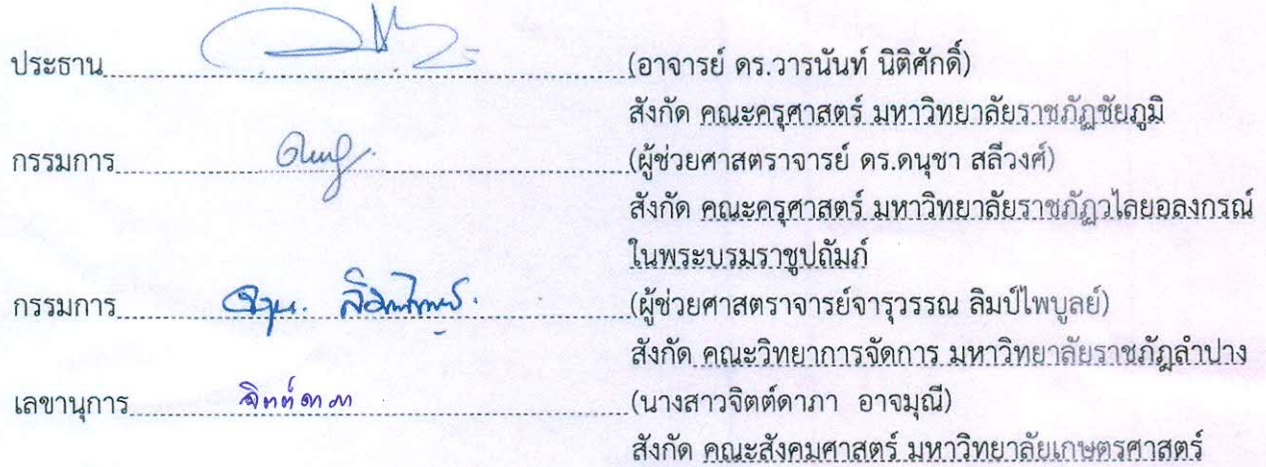 ประธาน (อาจารย์ ดร.วารนันท์ นิติศักดิ์)
สังกัด คณะครุศาสตร์ มหาวิทยาลัยราชภัฏชัยภูมิ
กรรมการ (ผู้ช่วยศาสตราจารย์ ดร.ดนุชา สลีวงศ์)
สังกัด คณะครุศาสตร์ มหาวิทยาลัยราชภัฏวไลยอลงกรณ์
ในพระบรมราชูปถัมภ์
กรรมการ (ผู้ช่วยศาสตราจารย์จารุวรรณ ลิมป์ไพบูลย์)
สังกัด คณะวิทยาการจัดการ มหาวิทยาลัยราชภัฏลำปาง
เลขานุการ จิตต์ดาภา (นางสาวจิตต์ดาภา อาจมุณี)
สังกัด คณะสังคมศาสตร์ มหาวิทยาลัยเกษตรศาสตร์